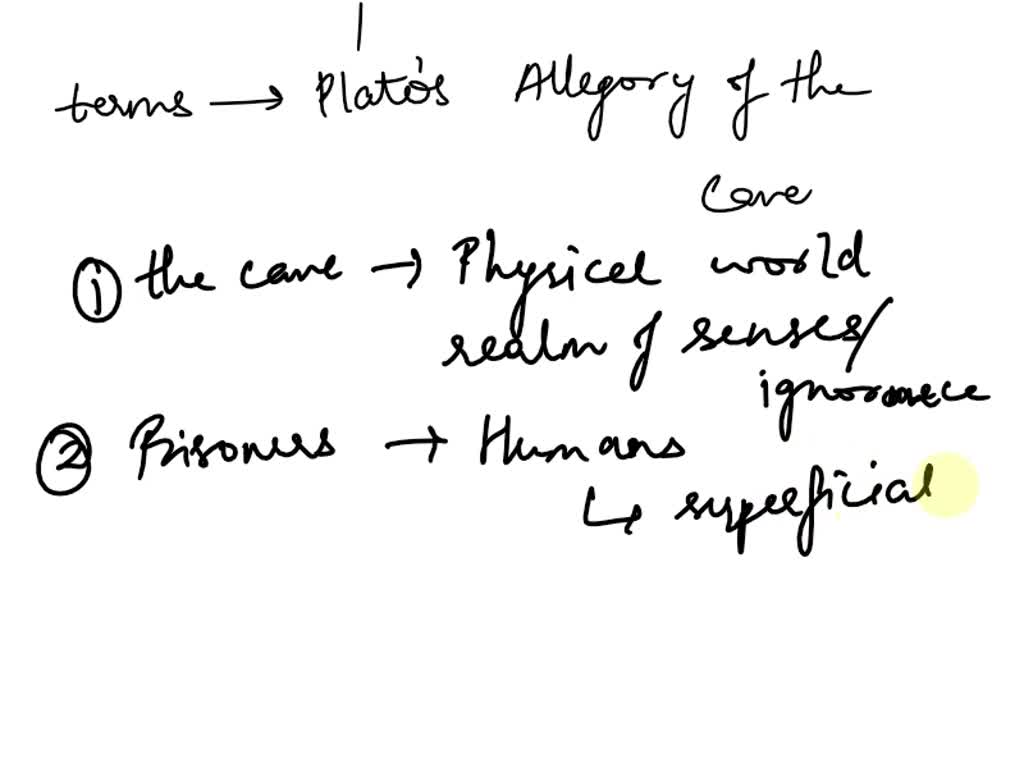 terms → Plato's Allegory of the
Cave
① the cave → Physical world
realm of senses/
ignorance
② Prisoners → Humans
↳ superficial